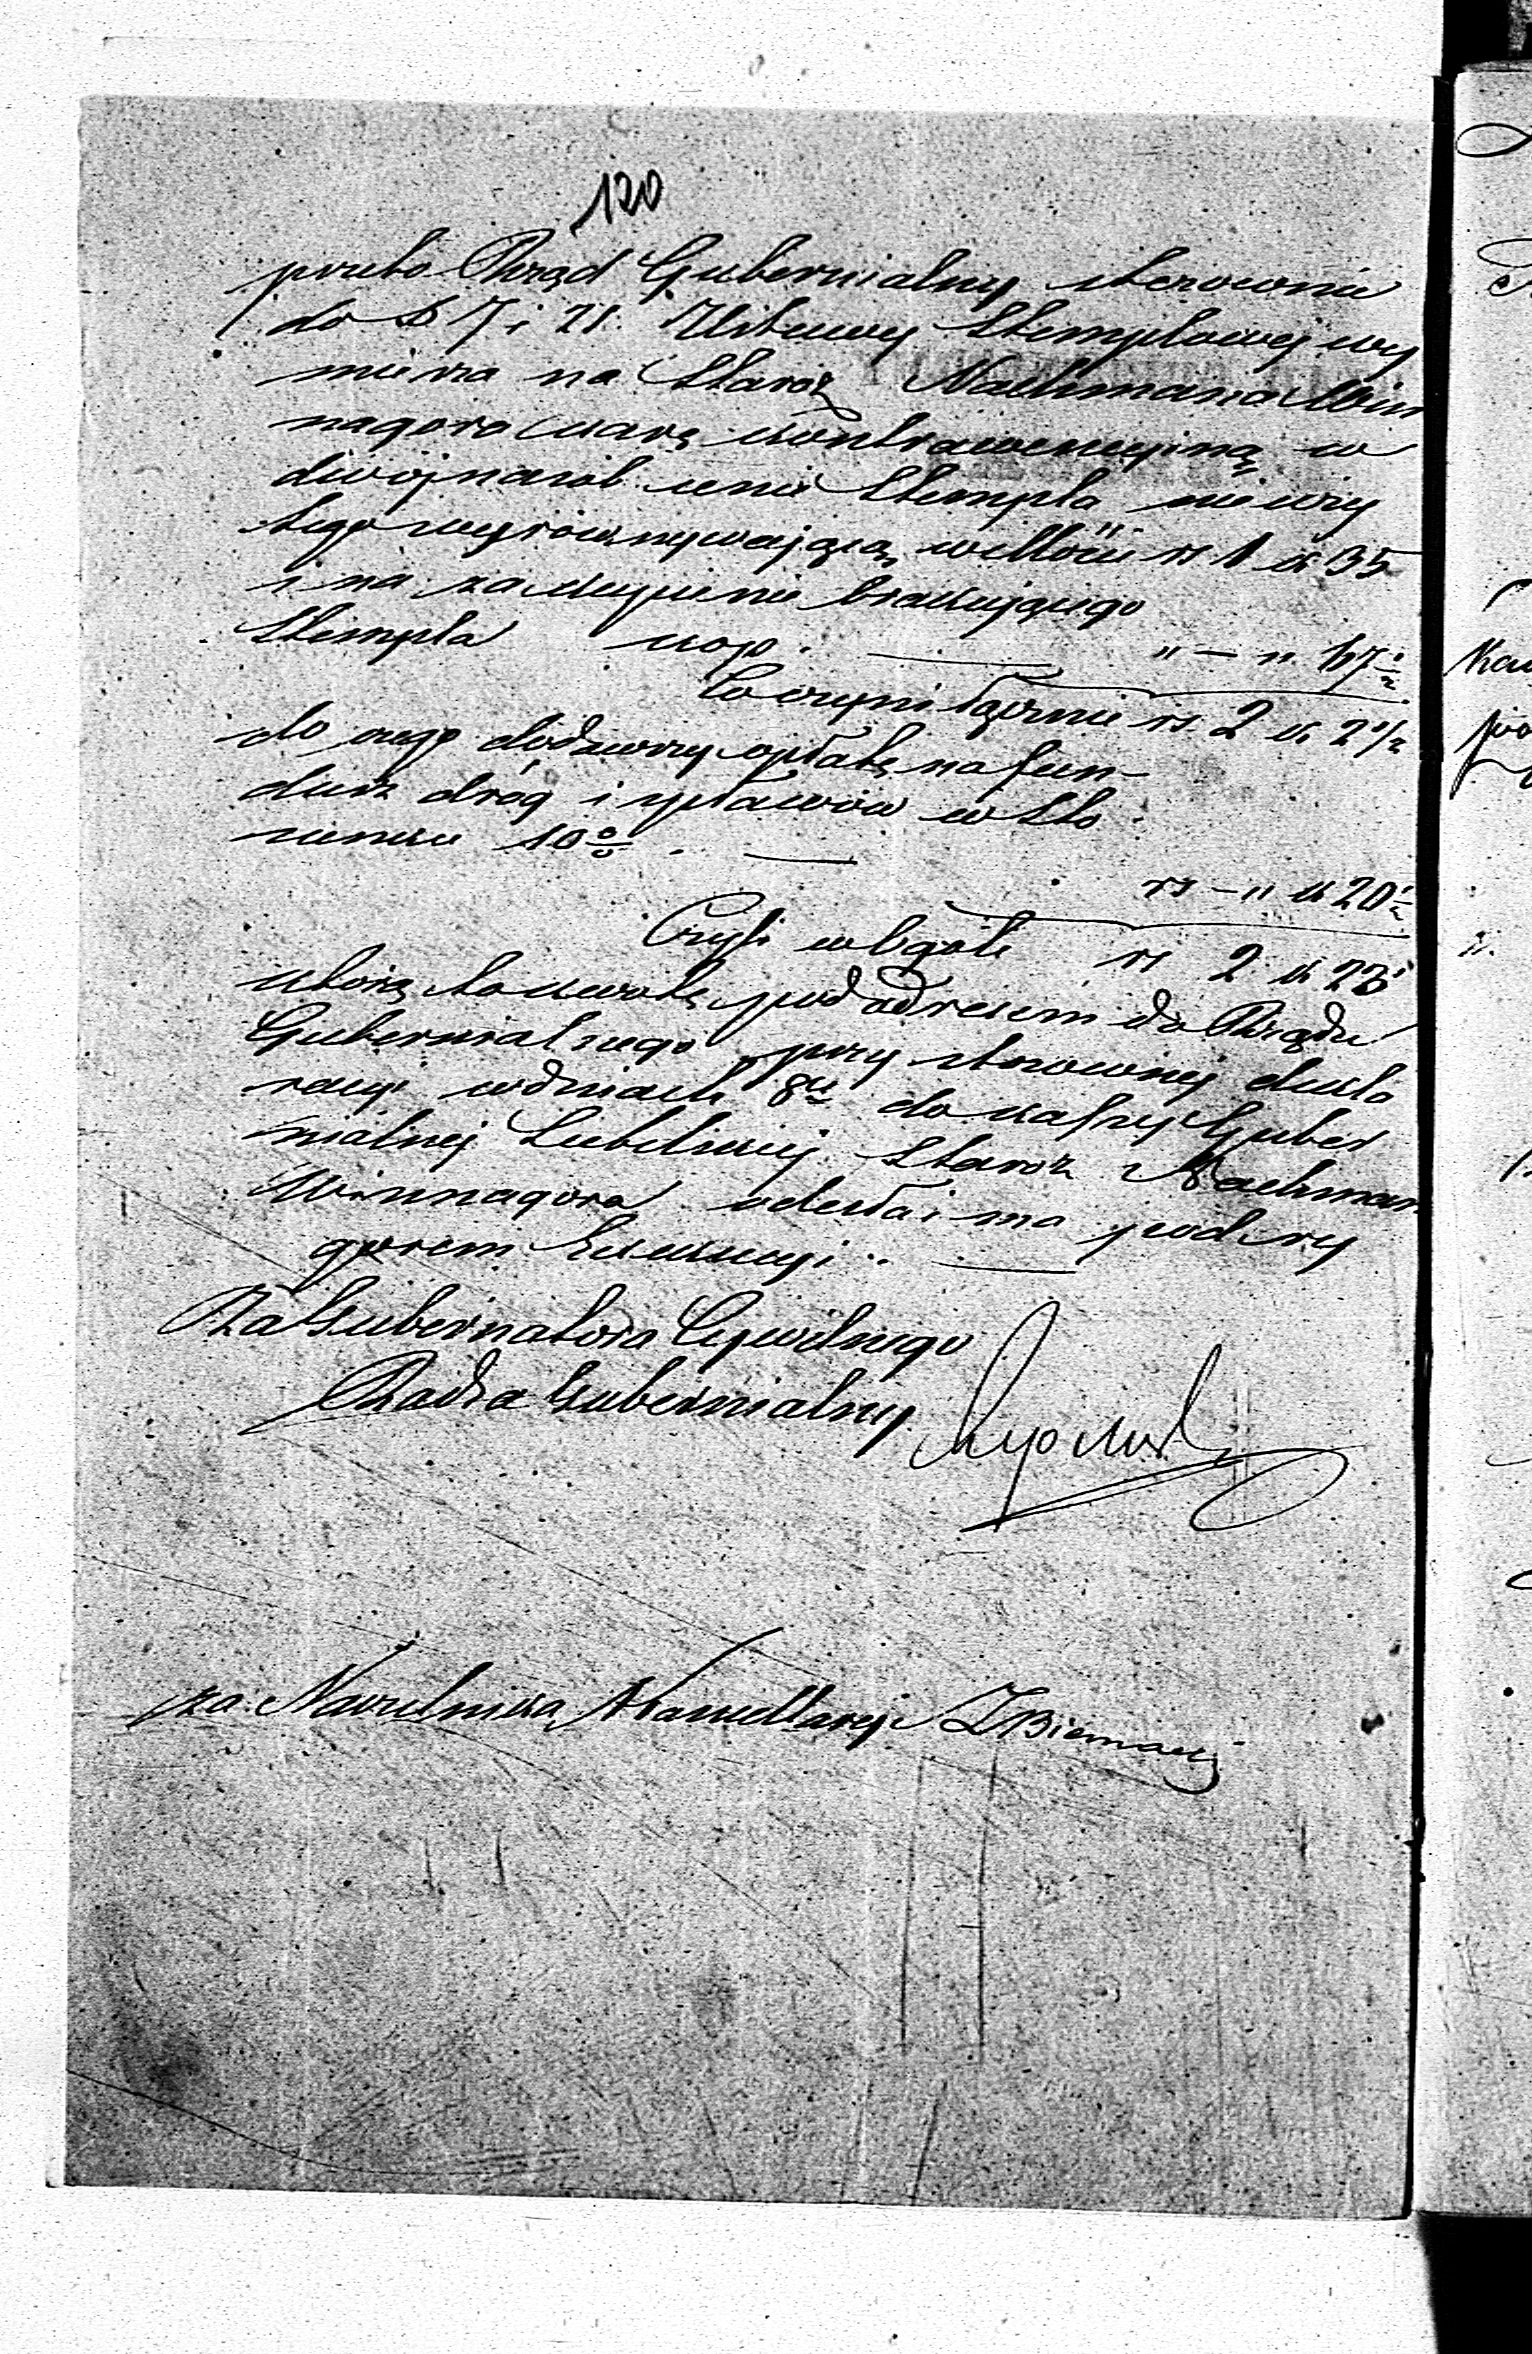 120
przeto Rząd Gubernialny stosownie
do § 7 i 21. Ustawy Stemplowej wy
mierza na Staroz Nachmana Win
nagora karę kontrawencyiną w
dwójnasób cenie Stempla nieuży
tego wyrównywającą w Ilości rs 1 k 35
i na zakupienie brakującego
Stempla kop. — " — " 67½
Co czyni łącznie rs. 2 k 2½
do czego dodawszy opłatę na fun
dusz dróg i spławów w sto
sunku 10% — rs — " k 20½
Czyli w Ogóle rs 2 k 23
którą to kwotę pod adresem do Rządu
Gubernialnego przy stosownej dekla
racyi w dniach 8u do kassy Guber
nialnej Lubelskiej Staroz Nachman
Winnagora odesłać ma pod ry
gorem Exekucyi. —
Za Gubernatora Cywilnego
Radca Gubernialny
za. Naczelnika Kancellaryi